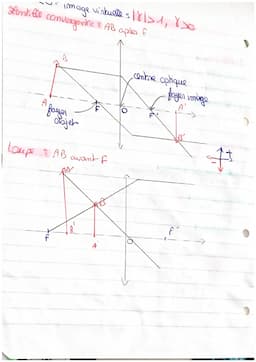 image virtuelle : |γ|>1, γ>0
lentille convergente : AB après F
B
centre optique
foyer image
A
F
O
F'
A'
foyer objet
B'
+
Loupe : AB avant F
B'
B
F
A'
A
O
F'